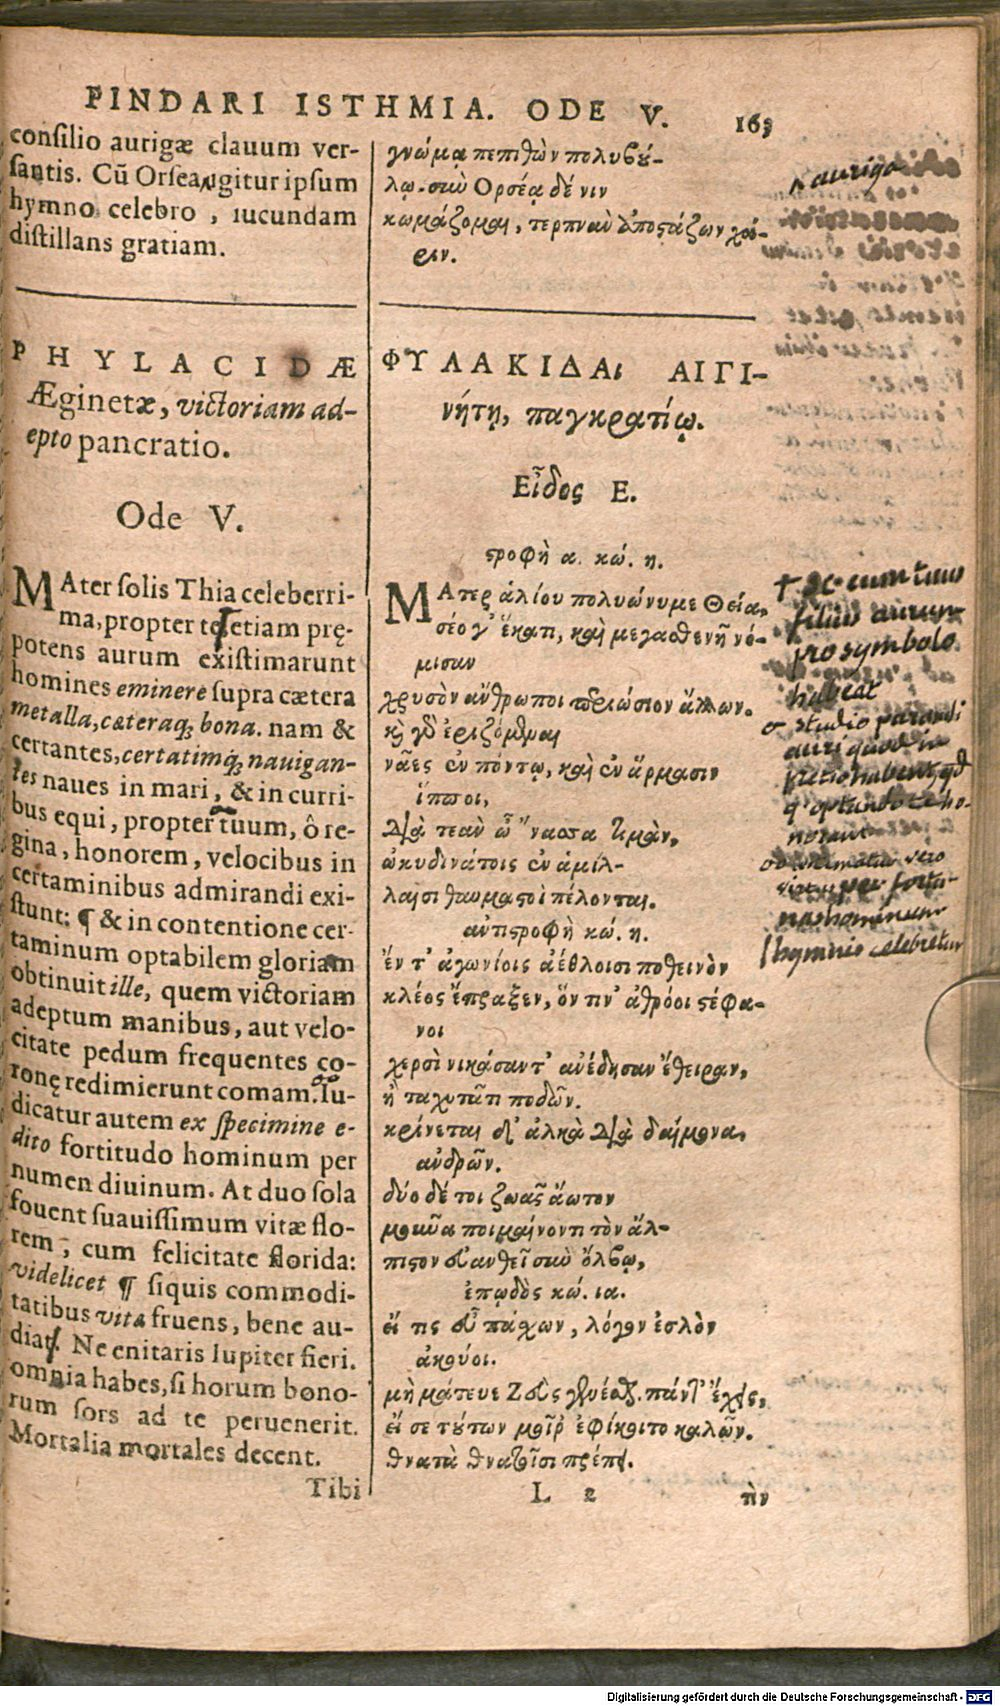 PINDARI ISTHMIA. ODE V. 163
consilio aurigæ clauum ver-
santis. Cũ Orsea igitur ipsum
hymno celebro, iucundam
distillans gratiam.
PHYLACIDÆ
Æginetæ, victoriam ad-
epto pancratio.
Ode V.
MAter solis Thia celeberri-
ma, propter te etiam præ-
potens aurum existimarunt
homines eminere supra cætera
metalla, cæteraq; bona. nam &
certantes, certatimq; nauigan-
tes naues in mari, & in curri-
bus equi, propter tuum, ô re-
gina, honorem, velocibus in
certaminibus admirandi exi-
stunt: ¶ & in contentione cer-
taminum optabilem gloriam
obtinuit ille, quem victoriam
adeptum manibus, aut velo-
citate pedum frequentes co-
ronę redimierunt comam. Iu-
dicatur autem ex specimine e-
dito fortitudo hominum per
numen diuinum. At duo sola
fouent suauissimum vitæ flo-
rem, cum felicitate florida:
videlicet ¶ siquis commodi-
tatibus vita fruens, bene au-
diat. Ne enitaris Iupiter fieri.
omnia habes, si horum bono-
rum sors ad te peruenerit.
Mortalia mortales decent.
Tibi
γνώμᾳ πεπιθὼν πολυβού-
λῳ. σὺν Ὀρσέᾳ δέ νιν
κωμάξομαι, τερπνὰν ἀποστάζων χά-
ριν.
ΦΥΛΑΚΙΔΑι ΑΙΓΙ-
νήτῃ, παγκρατίῳ.
Εἶδος Ε.
στροφὴ α. κώ. η.
ΜΑτερ ἁλίου πολυώνυμε Θεία,
σέο γ' ἕκατι, καὶ μεγασθενῆ νό-
μισαν
χρυσὸν ἄνθρωποι περιώσιον ἄλλων.
καὶ γὰρ ἐριζόμεναι
νᾶες ἐν πόντῳ, καὶ ἐν ἅρμασιν
ἵπποι,
διὰ τεὰν ὦ ''νασσα τιμὰν,
ὠκυδινάτοις ἐν ἁμίλ-
λαισι θαυμαστοὶ πέλονται.
ἀντιστροφὴ κώ. η.
ἔν τ' ἀγωνίοις ἀέθλοισι ποθεινὸν
κλέος ἔπραξεν, ὅν τιν' ἀθρόοι στέφα-
νοι
χερσὶ νικάσαντ' ἀνέδησαν ἔθειραν,
ἢ ταχυτᾶτι ποδῶν.
κρίνεται δ' ἀλκὰ διὰ δαίμονα,
ἀνδρῶν.
δύο δέ τοι ζωᾶς ἄωτον
μοῦνα ποιμαίνοντι τὸν ἄλ-
πιστον εὐανθεῖ σὺν ὄλβῳ,
ἐπῳδὸς κώ. ια.
εἴ τις εὖ πάσχων, λόγον ἐσλὸν
ἀκούοι.
μὴ μάτευε Ζεὺς γενέσθαι. πάντ' ἔχεις,
εἴ σε τούτων μοῖρ' ἐφίκοιτο καλῶν.
θνατὰ θνατοῖσι πρέπει.
L 2 τὶν
auriga
† &c. cum tuus
filius aurum
pro symbolo
habeat
studio parandi
auri quod in
pretio habent, qd
optando te ho-
norant
virtus per fortu-
nas hominum
hymnis celebretur
Digitalisierung gefördert durch die Deutsche Forschungsgemeinschaft - DFG